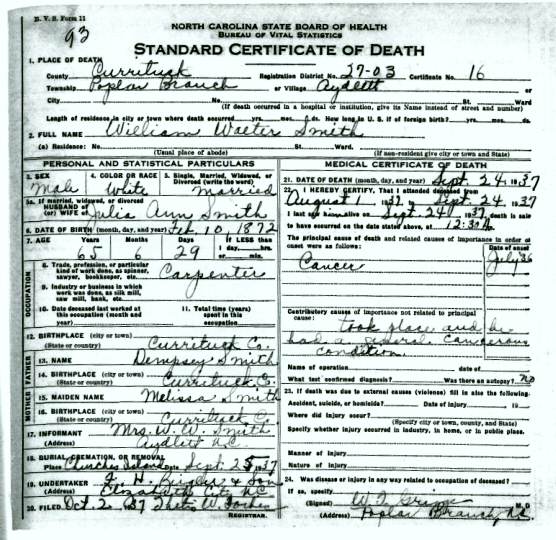 B. V. S. Form 11
93
NORTH CAROLINA STATE BOARD OF HEALTH
BUREAU OF VITAL STATISTICS
STANDARD CERTIFICATE OF DEATH
1. PLACE OF DEATH
County Currituck Registration District No. 27-03 Certificate No. 16
Township Poplar Branch or Village Aydlett or
City No. St. Ward
(If death occurred in a hospital or institution, give its Name instead of street and number)
Length of residence in city or town where death occurred yrs. mos. ds. How long in U. S. if of foreign birth? yrs. mos. ds.
2. FULL NAME William Walter Smith
(a) Residence: No. St. Ward
(Usual place of abode) (If non-resident give city or town and State)
PERSONAL AND STATISTICAL PARTICULARS
3. SEX 4. COLOR OR RACE 5. Single, Married, Widowed, or Divorced (write the word)
Male White Married
5a. If married, widowed, or divorced
HUSBAND of
(or) WIFE of Julia Ann Smith
6. DATE OF BIRTH (month, day, and year) Feb. 10, 1872
7. AGE Years Months Days If LESS than
1 day, hrs.
or min.
65 6 29
OCCUPATION
8. Trade, profession, or particular kind of work done, as spinner, sawyer, bookkeeper, etc. Carpenter
9. Industry or business in which work was done, as silk mill, saw mill, bank, etc.
10. Date deceased last worked at this occupation (month and year)
11. Total time (years) spent in this occupation
12. BIRTHPLACE (city or town)
(State or country) Currituck Co.
FATHER
13. NAME Dempsey Smith
14. BIRTHPLACE (city or town)
(State or country) Currituck Co.
MOTHER
15. MAIDEN NAME Melissa Smith
16. BIRTHPLACE (city or town)
(State or country) Currituck Co.
17. INFORMANT Mrs. W. W. Smith
(Address) Aydlett N.C.
18. BURIAL, CREMATION, OR REMOVAL
Place Churches Island Date Sept. 25 1937
19. UNDERTAKER & Son
(Address) Elizabeth City N.C.
20. FILED Oct. 2, 1937 W.
REGISTRAR.
MEDICAL CERTIFICATE OF DEATH
21. DATE OF DEATH (month, day, and year) Sept. 24 1937
22. I HEREBY CERTIFY, That I attended deceased from
August 1 1937 to Sept. 24 1937
I last saw him alive on Sept. 24 1937 death is said
to have occurred on the date stated above, at 12:30 A m.
The principal cause of death and related causes of importance in order of
onset were as follows: Date of onset
Cancer July 36
Contributory causes of importance not related to principal
cause:
took place and he
had a general cancerous
condition.
Name of operation date of
What test confirmed diagnosis? Was there an autopsy? no
23. If death was due to external causes (violence) fill in also the following:
Accident, suicide, or homicide? Date of injury 19
Where did injury occur?
(Specify city or town, county, and State)
Specify whether injury occurred in industry, in home, or in public place.
Manner of injury
Nature of injury
24. Was disease or injury in any way related to occupation of deceased?
If so, specify
(Signed) W. T. Griggs M.D
(Address) Poplar Branch, N.C.